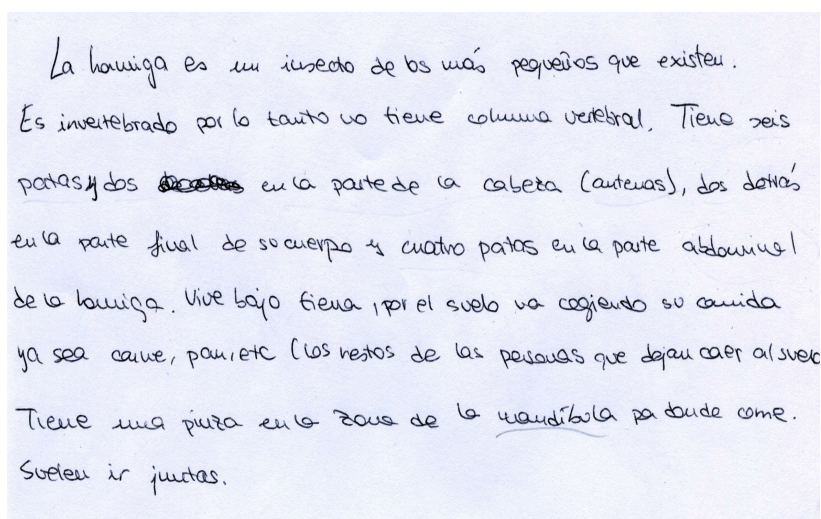 La hormiga es un insecto de los más pequeños que existen.
Es invertebrado por lo tanto no tiene columna vertebral. Tiene seis
patas y dos en la parte de la cabeza (antenas), dos detrás
en la parte final de su cuerpo y cuatro patas en la parte abdominal
de la hormiga. Vive bajo tierra, por el suelo va cogiendo su comida
ya sea carne, pan, etc (los restos de las personas que dejan caer al suelo
Tiene una pinza en la zona de la mandíbula por donde come.
Suelen ir juntas.